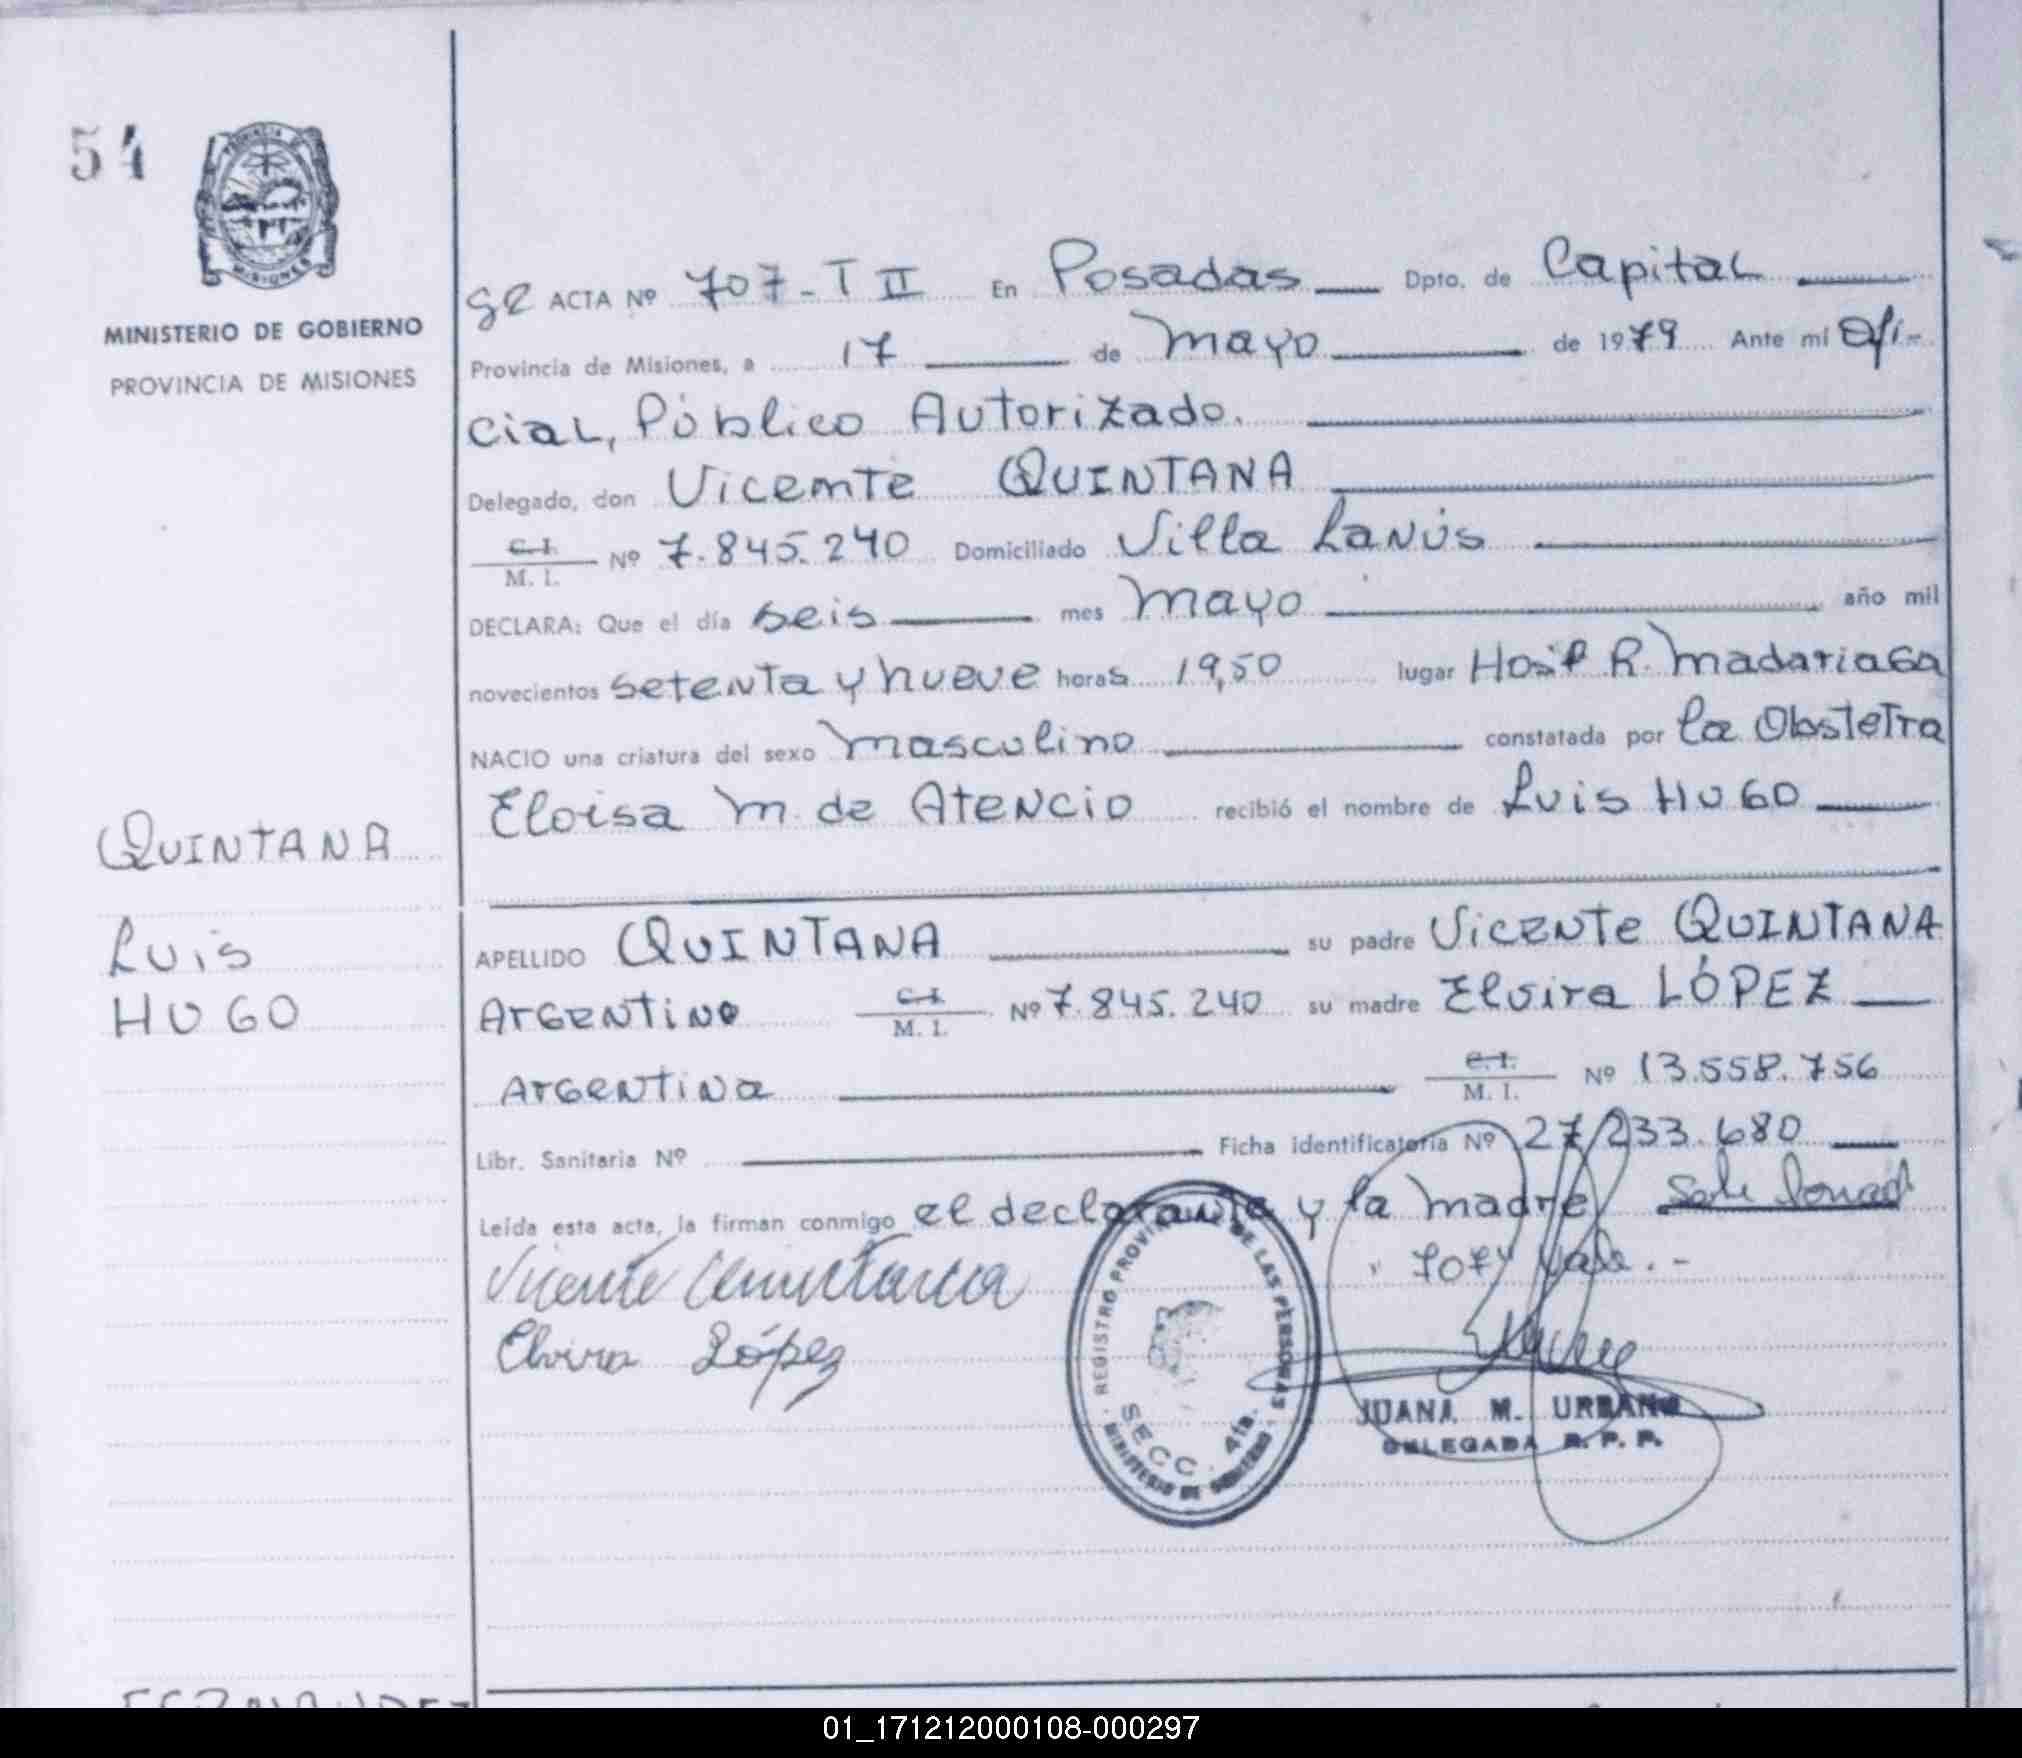 54
PROVINCIA DE MISIONES
MINISTERIO DE GOBIERNO
PROVINCIA DE MISIONES
ACTA Nº 707-T II En Posadas Dpto. de Capital
Provincia de Misiones, a 17 de Mayo de 1979 Ante mí Ofi-
cial, Público Autorizado.
Delegado, don Vicente QUINTANA
C.I. M. I. Nº 7.845.240 Domiciliado Villa Lanús
DECLARA: Que el día seis mes Mayo año mil
novecientos setenta y nueve horas 19,50 lugar Hosp R. Madariaga
NACIO una criatura del sexo Masculino constatada por la Obstetra
Eloisa M. de Atencio recibió el nombre de Luis HUGO
QUINTANA
Luis
HUGO
APELLIDO QUINTANA su padre Vicente QUINTANA
Argentino C.I. M. I. Nº 7.845.240 su madre Elvira LÓPEZ
Argentina C.I. M. I. Nº 13.558.756
Libr. Sanitaria Nº Ficha identificatoria Nº 27.233.680
Leída esta acta, la firman conmigo el declarante y la madre
Vicente Quintana
"707" Vale.-
Elvira López
REGISTRO PROVINCIAL DE LAS PERSONAS
SECC. 4ta.
MINISTERIO DE GOBIERNO
JUANA M. URBANO
DELEGADA R. P. P.
01_171212000108-000297